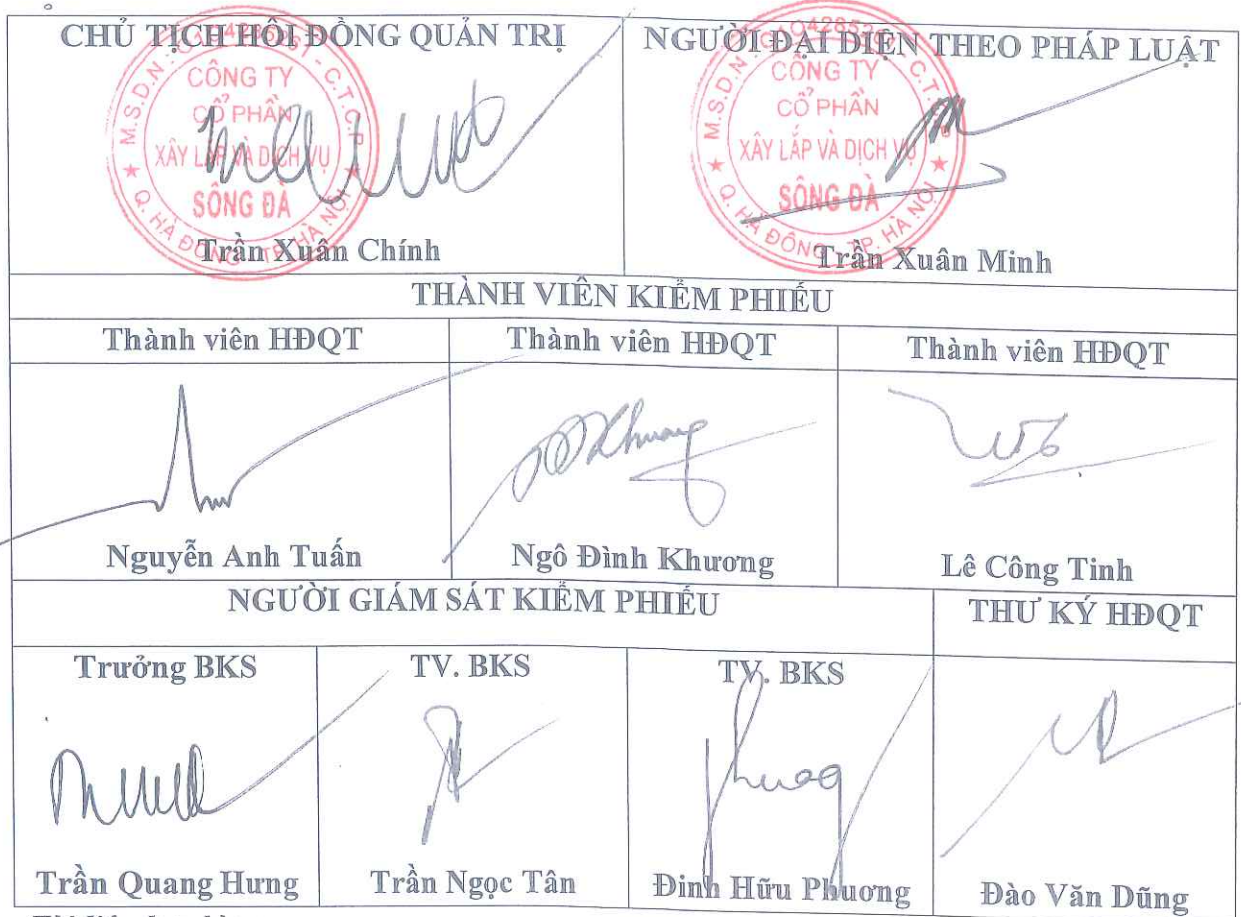 CHỦ TỊCH HỘI ĐỒNG QUẢN TRỊ
CÔNG TY
CỔ PHẦN
XÂY LẮP VÀ DỊCH VỤ
SÔNG ĐÀ
M.S.D.N: C.T.C.P
Q. HÀ ĐÔNG - TP. HÀ NỘI
Trần Xuân Chính
NGƯỜI ĐẠI DIỆN THEO PHÁP LUẬT
CÔNG TY
CỔ PHẦN
XÂY LẮP VÀ DỊCH VỤ
SÔNG ĐÀ
M.S.D.N: C.T.
Q. HÀ ĐÔNG - TP. HÀ NỘI
Trần Xuân Minh
THÀNH VIÊN KIỂM PHIẾU
Thành viên HĐQT
Thành viên HĐQT
Thành viên HĐQT
Khuang
Nguyễn Anh Tuấn
Ngô Đình Khương
Lê Công Tinh
NGƯỜI GIÁM SÁT KIỂM PHIẾU
THƯ KÝ HĐQT
Trưởng BKS
TV. BKS
TV. BKS
Trần Quang Hưng
Trần Ngọc Tân
Đinh Hữu Phuơng
Đào Văn Dũng